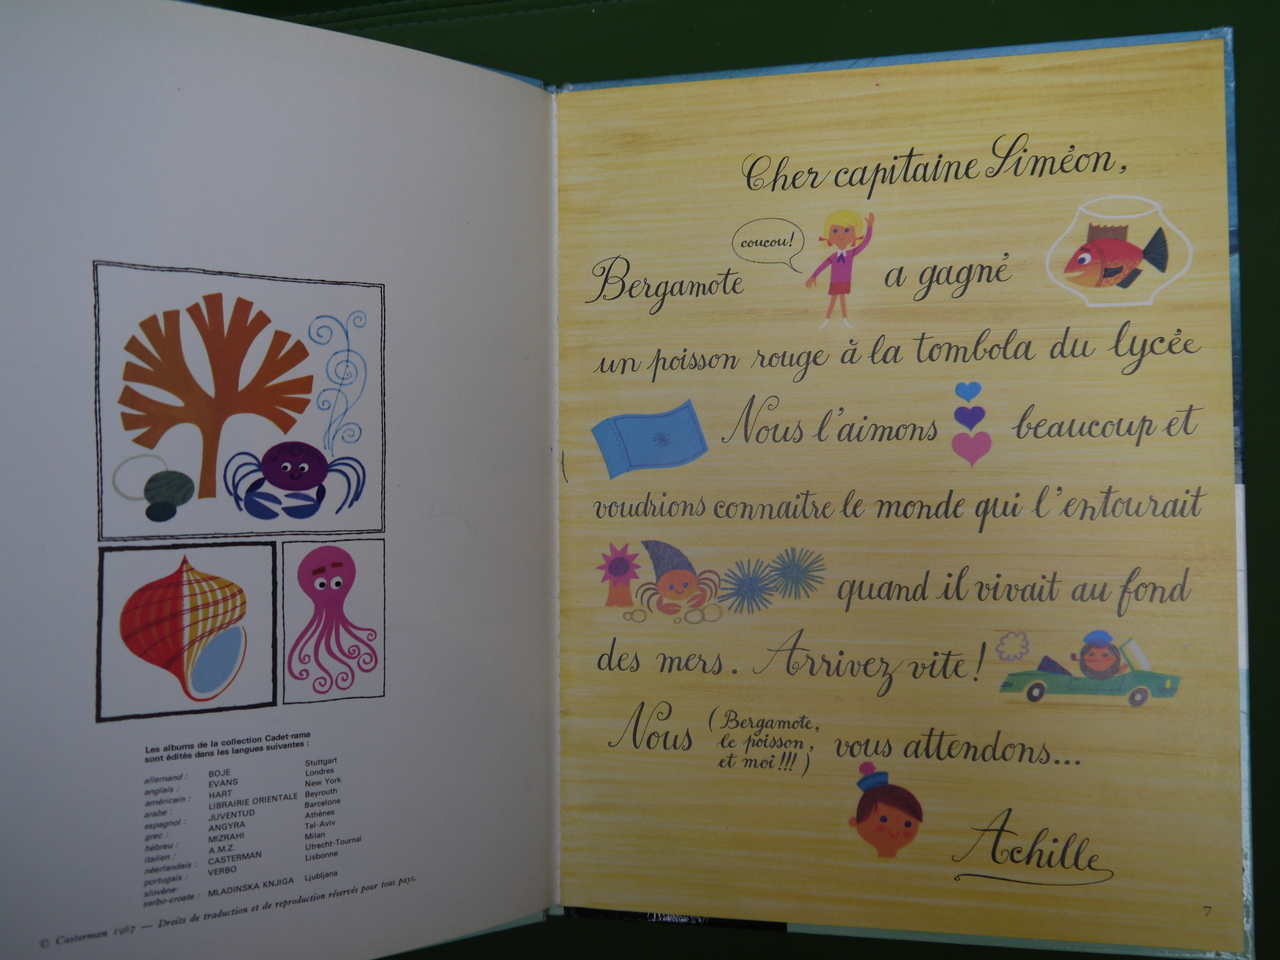 Les albums de la collection Cadet-rama
sont édités dans les langues suivantes :
allemand : BOJE Stuttgart
anglais : EVANS Londres
américain : HART New York
arabe : LIBRAIRIE ORIENTALE Beyrouth
espagnol : JUVENTUD Barcelone
grec : ANGYRA Athènes
hébreu : MIZRAHI Tel-Aviv
italien : A.M.Z. Milan
néerlandais : CASTERMAN Utrecht-Tournai
portugais : VERBO Lisbonne
slovène-
serbo-croate : MLADINSKA KNJIGA Ljubljana
© Casterman 1967 — Droits de traduction et de reproduction réservés pour tous pays.
Cher capitaine Siméon,
coucou!
Bergamote a gagné
un poisson rouge à la tombola du lycée
Nous l'aimons beaucoup et
voudrions connaitre le monde qui l'entourait
quand il vivait au fond
des mers. Arrivez vite!
Nous (Bergamote,
le poisson,
et moi!!!) vous attendons...
Achille
7